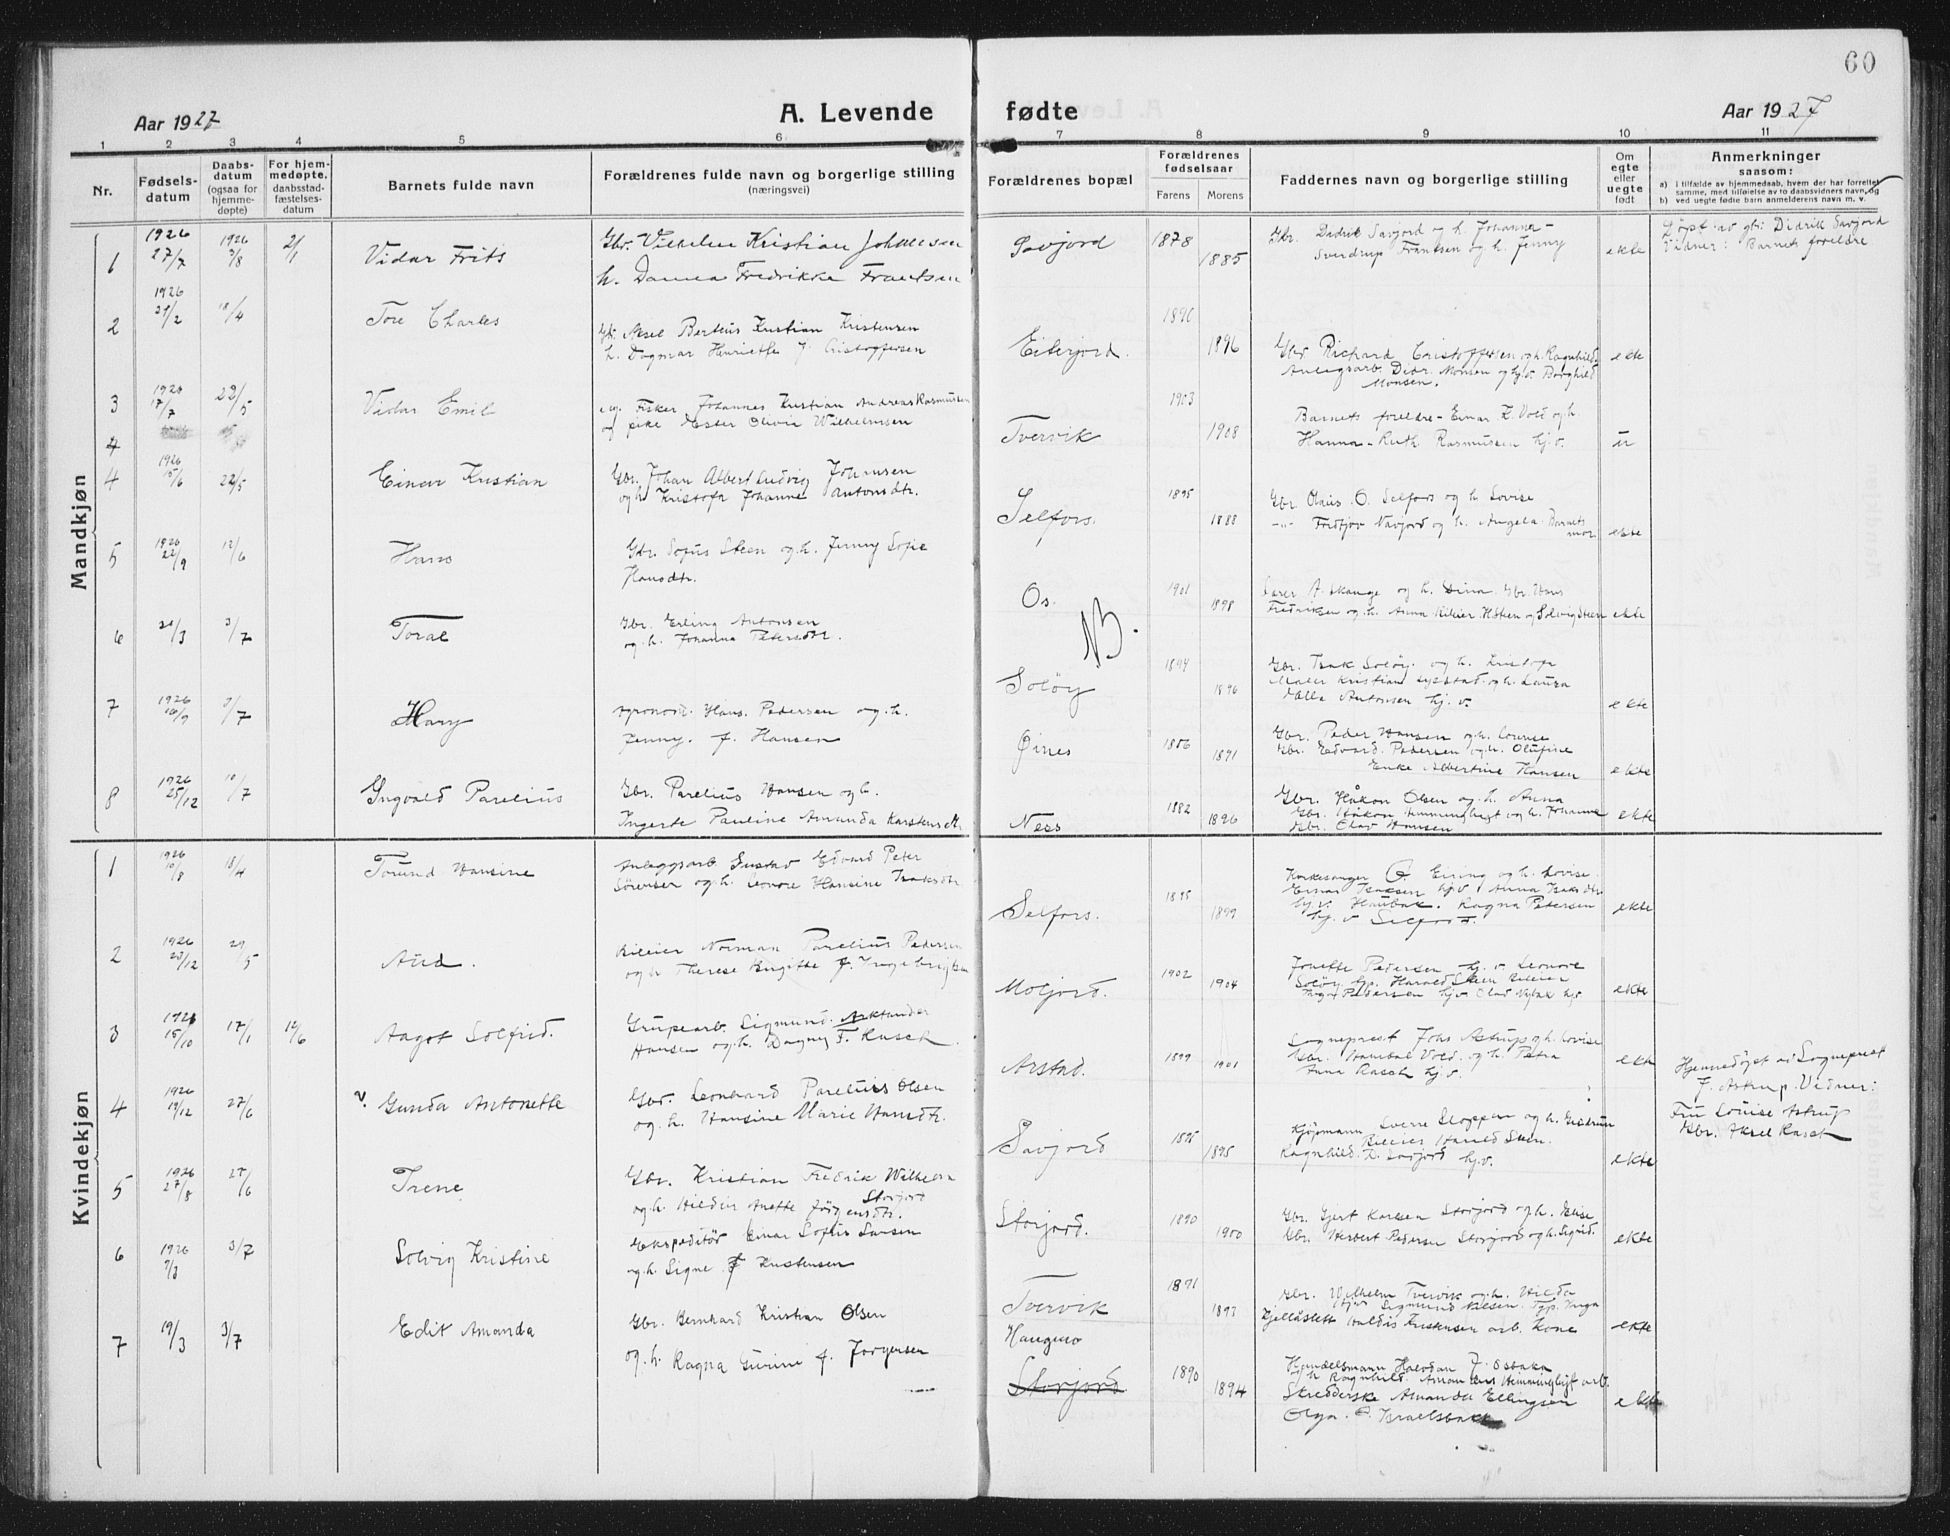 60
Aar 1927
A. Levende fødte
Aar 1927
1 2 3 4 5 6 7 8 9 10 11
Nr.
Fødsels-
datum
Daabs-
datum
(ogsaa for
hjemme-
døpte)
For hjem-
medøpte,
daabsstad-
fæstelses-
datum
Barnets fulde navn
Forældrenes fulde navn og borgerlige stilling
(næringsvei)
Forældrenes bopæl
Forældrenes
fødselsaar
Farens Morens
Faddernes navn og borgerlige stilling
Om
egte
eller
uegte
født
Anmerkninger
saasom:
a) I tilfælde av hjemmedaab, hvem der har forrettet
samme, med tilføielse av to daabsvidners navn, og
b) ved uegte fødte barn anmelderens navn m. v.
Mandkjøn
1 1926 27/7 1926 3/8 2/1 Vidar Frits
Gbr. Vilhelm Kristian Johansen
h. Danea Fredrikke Frantsen
Savjord 1878 1885
Gbr. Didrik Savjord og h. Johanna -
Sverdrup Frantsen og h. Jenny
ekte
Døpt av gbr. Didrik Savjord
Vidner: Barnets foreldre
2 1926 18/4 Tore Charles
Gbr. Aksel Berteus Kristian Kristensen
h. Dagmar Henriette f. Cristoffersen
Eiterjord. 1896
Gbr Richard Cristoffersen og h. Ragnhild.
Anlegsarb. Didr. Monsen og hj.v. Borghild
Monsen.
ekte
3 17/7 22/5 Vidar Emil
Fisker Johannes Kristian Andreas Rasmussen
og pike Ester Olivie Wilhelmsen
Tvervik 1903 1908
Barnets foreldre - Einar K. Vold og h.
Hanna - Ruth Rasmussen hj.v.
u
4
4 1926 15/6 22/5 Einar Kristian
Gbr. Johan Albert Ludvig Johansen
og h. Kristofa Johanne Antonsdtr.
Selfors. 1895 1888
Gbr. Olaus O. Selfors og h. Lovise
-"- Navjord og h. Angela. Barnets
mor.
ekte
5 1926 22/9 12/6 Hans
Gbr. Sofus Steen og h. Jenny Sofie
Hansdtr.
Os. 1901 1898
Lærer A. Skauge og h. Dina. Gbr. Hans
Fredriksen og h. Anna Bileier H. Steen og Solveig Steen
ekte
6 20/3 3/7 Toral
Gbr. Erling Antonsen
og h. Johanna Petersdtr.
NB.
Soløy 1894 1896
Gbr. Isak Soløy. og h. Kristofa
Maler Kristian Lysstad og h. Laura
Ella Antonsen hj. v.
ekte
7 1926 3/7 Hary
Agronom. Hans. Pedersen og h.
Jenny. f. Hansen
Øines 1886 1891
Gbr. Peder Hansen og h. Lovise
Gbr. Edvard. Pedersen og h. Olufine
Enke Albertine Hansen
ekte
8 1926 25/12 10/7 Ingvald Parelius
Gbr. Parelius Hansen og h.
Ingerte Pauline Amanda Karstensdtr.
Ness 1882 1896
Gbr. Håkon Olsen og h. Anna
Gbr. Håkon Hemminghyt og h. Johanne
Gbr. Olav Hansen
ekte
Kvindekjøn
1 1926 10/8 18/4 Torund Hansine
Anleggsarb. Gustav Edvard Peter
Sørensen og h. Leonore Hansine Isaksdtr.
Selfors. 1895 1899
Kirkesanger O. Eining og h. Lovise.
Einar Isaksen hj.v. Anna Isaksdtr.
hj.v. Haubak. Ragna Petersen
hj. v Selfors.
ekte
2 1926 29/5 Aud.
Bileier Norman Parelius Pedersen
og h Therese Birgitte f. Ingebrigtsen
Moljord. 1902 1904
Jonette Pedersen hj. v. Leonore
Soløy hp. Harald Steen Bileier
Inga Pedersen hj.v. Olav hj.v
ekte
3 15/10 17/1 12/6 Aagot Solfrid.
Grubearb. Sigmund. Arktander
Hansen og h. Dagny F. Rasch.
Arstad. 1899 1901
Sogneprest Johs Astrup og h. Lovise
Gbr. Hanibal Vold. og h. Petra
Anna Rasch hj. v.
ekte
Hjemmedøpt av Sogneprest
J. Astrup. Vidner:
Fru Louise Astrup
Gbr. Aksel Rasch
4 1926 19/12 27/6 v. Gunda Antonette
Gbr. Leonhard Parelius Olsen
og h. Hansine Marie Hansdtr.
Savjord 1895 1895
Kjøpmann Sverre Stoppen og h. Gudrun
Bileier Harald Steen.
Ragnhild. D. Savjord hj.v.
ekte
5 1926 27/8 27/6 Irene
Gbr. Kristian Fredrik Wilhelm
Storjord
og h. Hildur Anette Jørgensdtr.
Storjord. 1890 1900
Gbr. Gjert Karlsen Storjord og h. Elise
Gbr. Herbert Pedersen Storjord og h. Sigrid.
ekte
6 1926 7/3 3/7 Solvig Kristine
Ekspeditør Einar Sofus Larsen
og h. Signe f Kristensen
Tvervik 1891 1893
Gbr. Wilhelm Tvervik og h. Hilda
Sigmund Nilsen. Tjp. Inga
Fjellåslett Haldis Kristensen arb. kone
ekte
7 19/3 3/7 Edit Amanda
Gbr. Bernhard Kristian Olsen
og h. Ragna Gurine f. Jørgensen
Haugmo
Storjord 1890 1894
Handelsmann Halvdan J. Osbakk
h Ragnhild Amandus Hemminghyt arb.
Skredderske Amanda Ellingsen
Olga. Israelsbakk
ekte